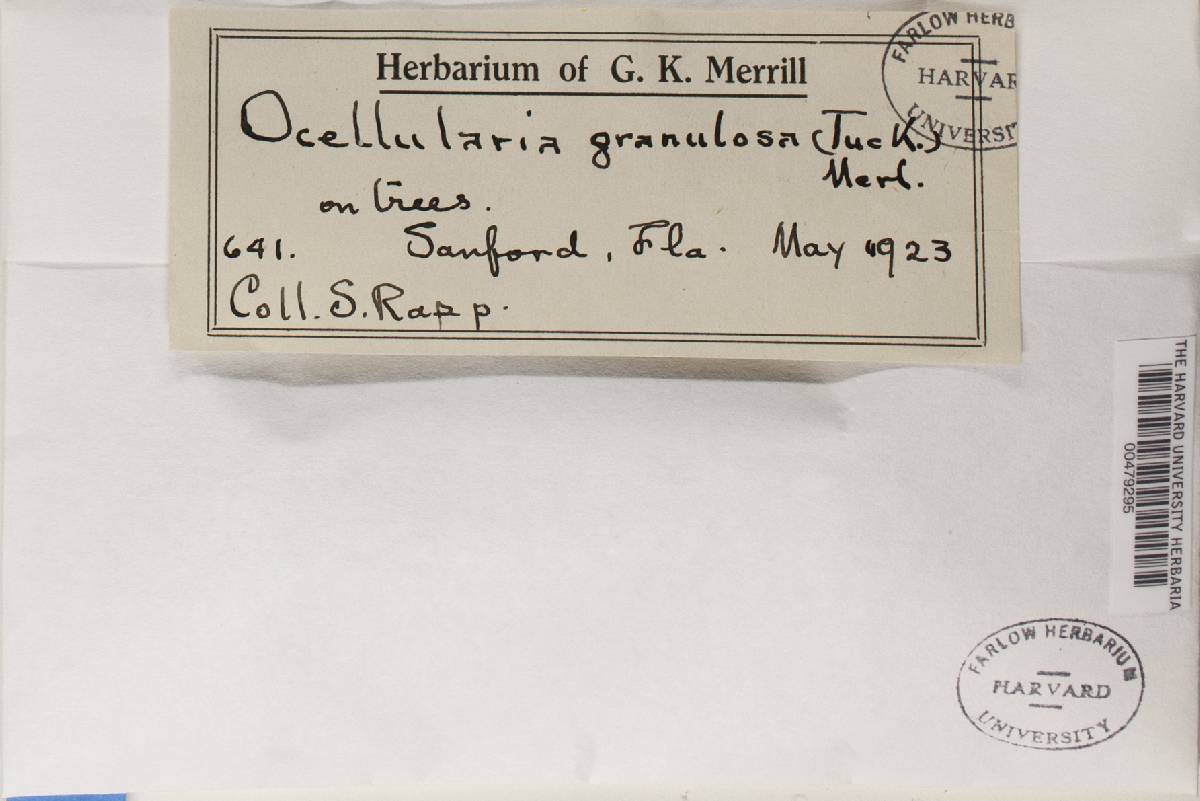 Herbarium of G. K. Merrill
FARLOW HERB
HARVAR
UNIVERSIT
Ocellularia granulosa (Tuck.)
Merl.
on trees.
641. Sanford, Fla. May 1923
Coll. S. Rapp.
THE HARVARD UNIVERSITY HERBARIA
00479295
FARLOW HERBARIUM
HARVARD
UNIVERSITY